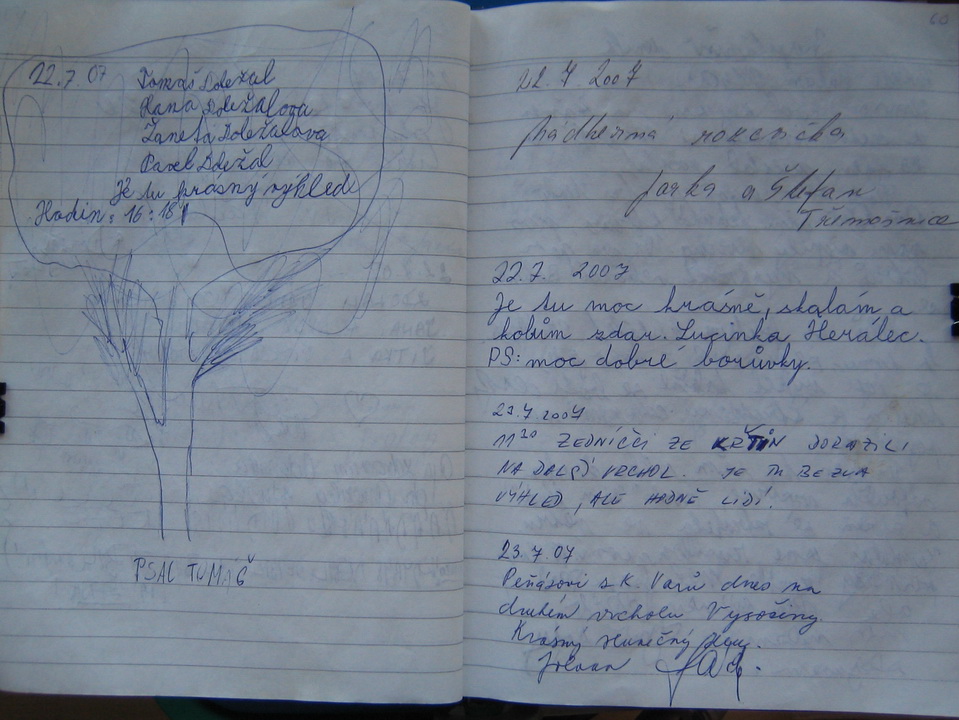 22.7.07 Tomáš Doležal
Hana Doležalova
Žaneta Doležalova
Pavel Doležal
Je tu krásný výhled
Hodin: 16:18
PSAL TOMÁŠ
60
22.7 2007
Nádherná
Jarka a Štefan
Třemošnice
22.7. 2007
Je tu moc krásně, skalám a
kobům zdar. Lucinka Herálec.
PS: moc dobré borůvky.
23.7.2007
11 ZEDNÍČCI ZE KŘTIN DORAZILI
NA DALŠÍ VRCHOL. JE TU BEZVA
VÝHLED, ALE HODNĚ LIDÍ.
23.7.07
s K. Varů dnes na
druhém vrcholu Vysočiny
Krásný slunečný